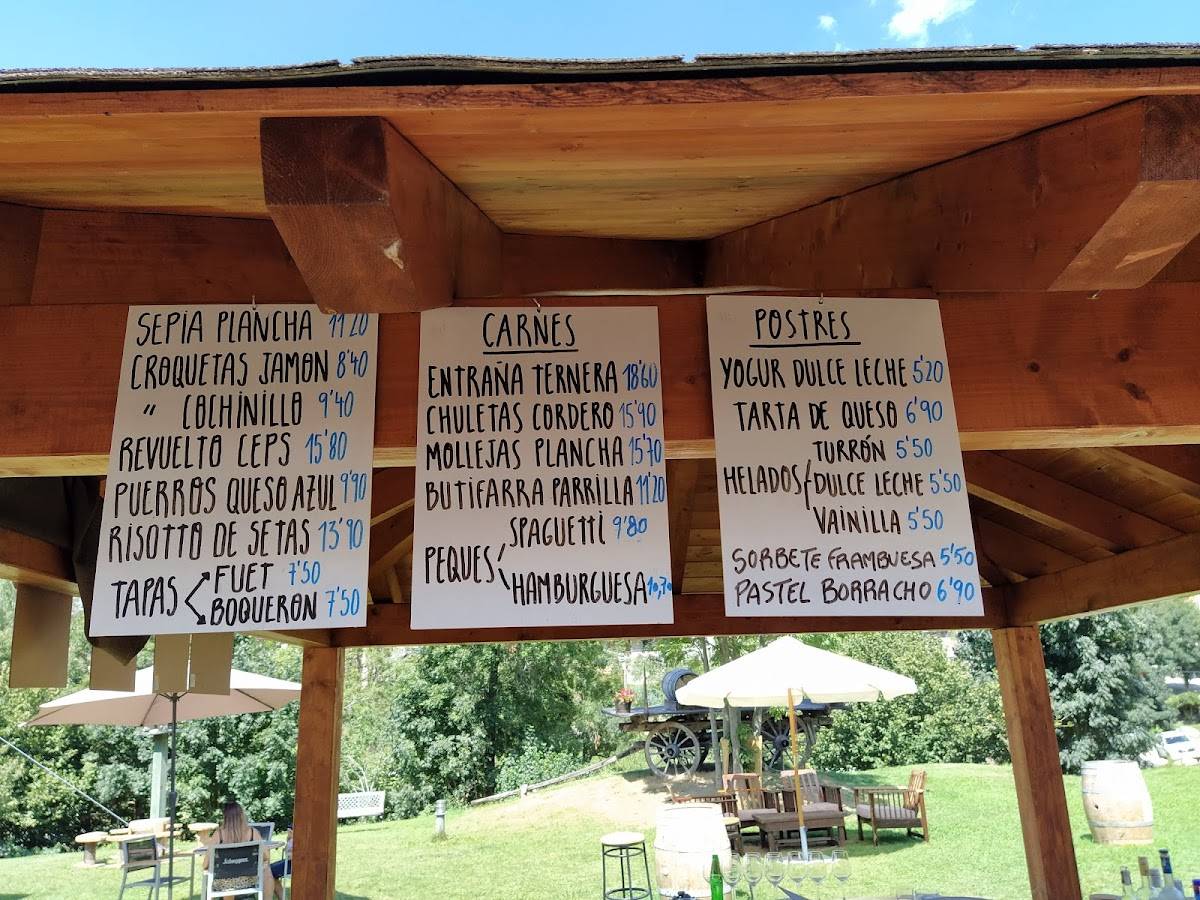 SEPIA PLANCHA 11'20
CROQUETAS JAMON 8'40
" COCHINILLO 9'40
REVUELTO CEPS 15'80
PUERROS QUESO AZUL 9'90
RISOTTO DE SETAS 13'90
TAPAS FUET 7'50
BOQUERON 7'50
CARNES
ENTRAÑA TERNERA 18'60
CHULETAS CORDERO 15'90
MOLLEJAS PLANCHA 15'70
BUTIFARRA PARRILLA 11'20
PEQUES SPAGUETTI 9'80
HAMBURGUESA 10,70
POSTRES
YOGUR DULCE LECHE 5'20
TARTA DE QUESO 6'90
HELADOS TURRÓN 5'50
DULCE LECHE 5'50
VAINILLA 5'50
SORBETE FRAMBUESA 5'50
PASTEL BORRACHO 6'90